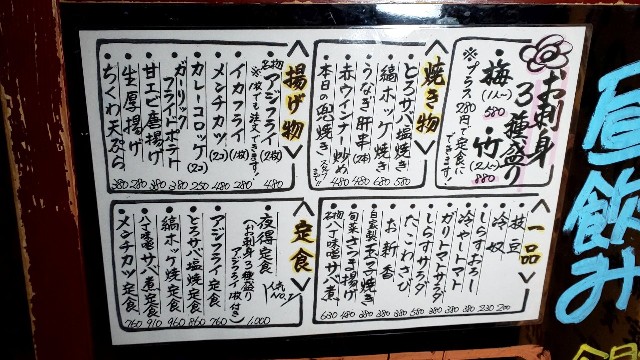 お刺身
3種盛り
・梅(1人〜)
580
・竹(2人〜)
880
※プラス280円で定食に
できます。
焼き物
・とろサバ塩焼き 580
・縞ホッケ焼き 680
・うなぎ肝串(2本) 480
・赤ウインナー炒め 380
・本日の兜焼き
揚げ物
・名物アジフライ 480
※1枚でも注文できます!
・イカフライ(2枚) 280
・メンチカツ(2コ) 480
・カレーコロッケ(2コ) 250
・ガーリック
フライドポテト 380
・甘エビ唐揚げ 380
・生厚揚げ 280
・ちくわ天ぷら 380
一品
・枝豆 200
・冷奴 230
・しらすおろし 380
・冷やしトマト 380
・ガリトマサラダ 380
・しらすサラダ 580
・たこわさび 380
・お新香 380
・自家製玉子焼き 380
・旬菜さつま揚げ 480
・名物八丁味噌サバ煮 630
定食
・夜得定食 1,000
人気
No.1
(お刺身3種盛り
アジフライ1枚付き)
・アジフライ定食 760
・とろサバ塩焼定食 860
・縞ホッケ焼定食 960
・八丁味噌サバ煮定食 910
・メンチカツ定食 760
昼飲み